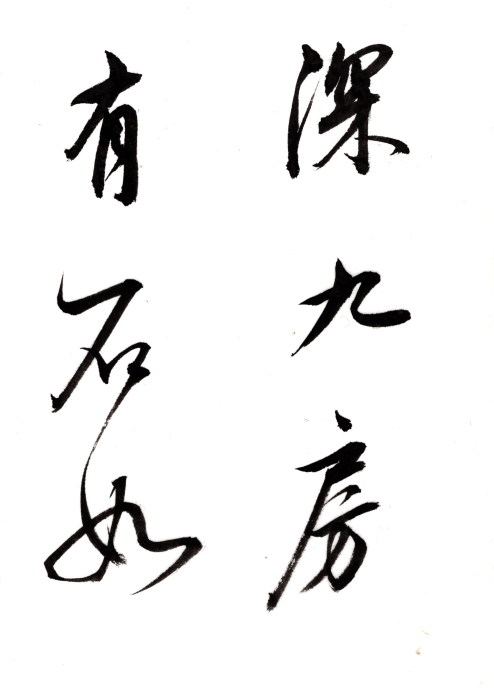 深九房
有石如